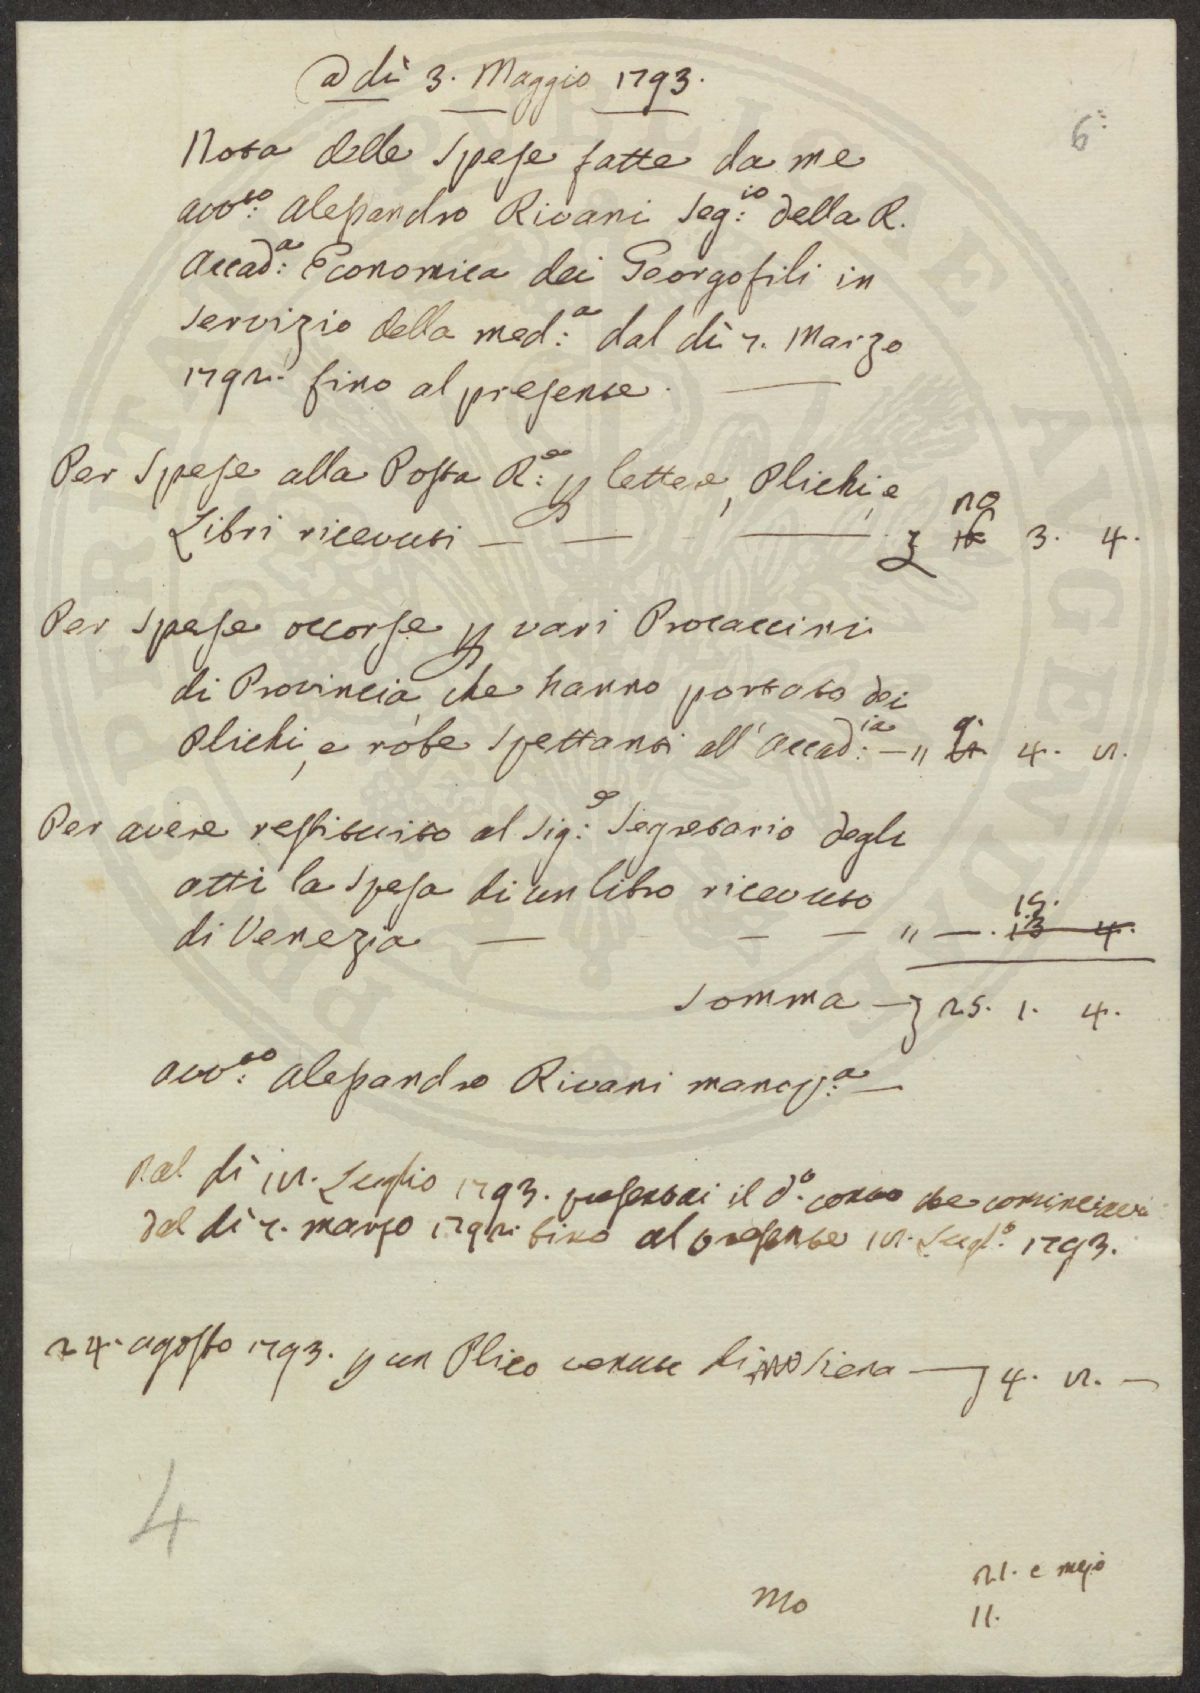 a dì 3. Maggio 1793.
6
Nota delle Spese fatte da me
avv.to Alessandro Rivani Seg.io della R.
Accad.a Economica dei Georgofili in
servizio della med.a dal dì 2. Marzo
1792. fino al presente.
Per Spese alla Posta R.e p lettere, Plichi, e
Libri ricevuti — — — 3. 4.
Per spese occorse p vari Procaccini
di Provincia che hanno portato dei
Plichi, e robe spettanti all'Accad.ia — " 4. 2.
Per avere restituito al Sig.e Segretario degli
Atti la spesa di un libro ricevuto
di Venezia — — — " —. 15.
Somma — 25. 1. 4.
Avv.to Alessandro Rivani manopp.a —
Nel dì 12. Luglio 1793. presentai il d.o conto che cominciava
dal dì 2. marzo 1792. fino al presente 12. Lugl.o 1793.
24. agosto 1793. p un Plico venute di Siena — 4. 2. —
4
21. e mezo
11.